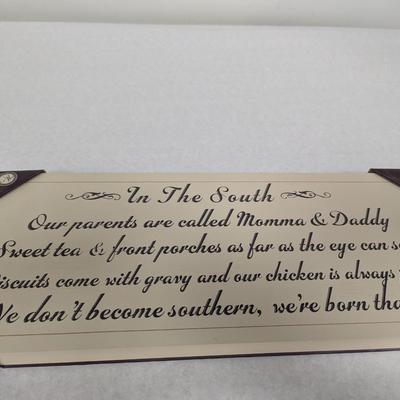 In The South
Our parents are called Momma & Daddy
Sweet tea & front porches as far as the eye can
Biscuits come with gravy and our chicken is always
We don't become southern, we're born